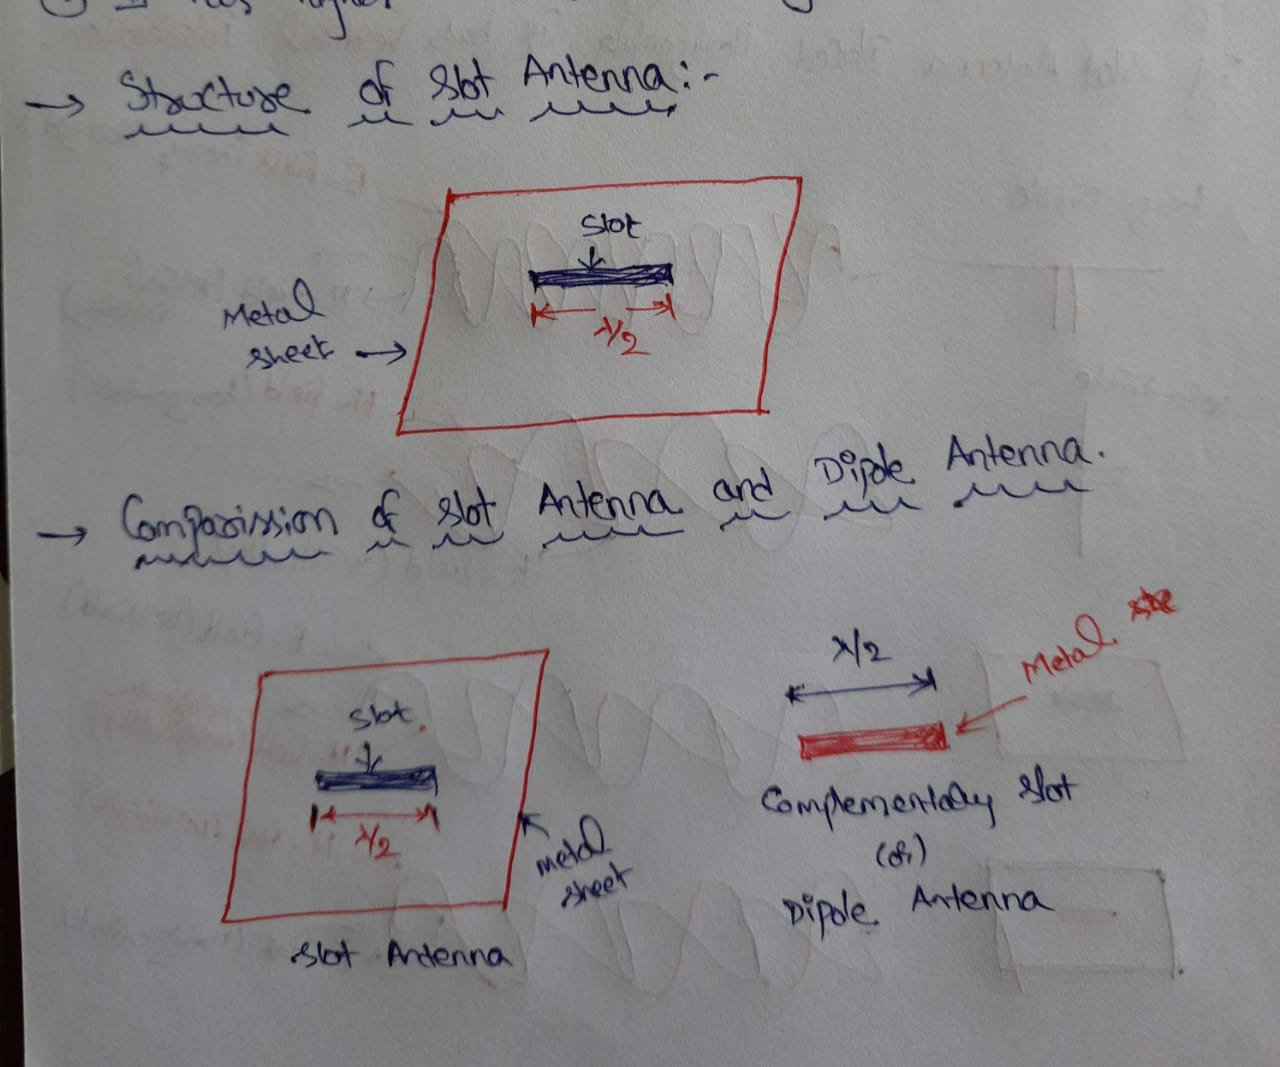 → Structure of Slot Antenna:-
Slot
λ/2
Metal
sheet →
→ Comparission of Slot Antenna and Dipole Antenna.
Slot
λ/2
metal
sheet
Slot Antenna
λ/2
Metal
Complementary Slot
(or)
Dipole Antenna